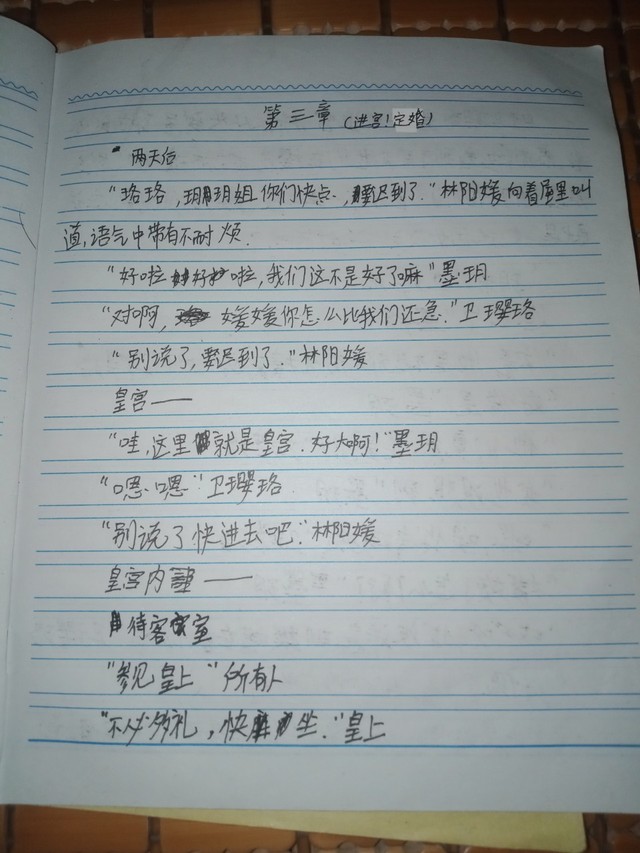 第三章（进宫！定婚）
两天后
“珞珞，玥玥姐你们快点，要迟到了.”林阳媛向着屋里叫
道，语气中带有不耐烦.
“好啦好啦，我们这不是好了嘛”墨玥
“对啊，媛媛你怎么比我们还急.”卫璎珞
“别说了，要迟到了.”林阳媛
皇宫——
“哇，这里就是皇宫.好大啊！”墨玥
“嗯嗯”卫璎珞
“别说了快进去吧.”林阳媛
皇宫内——
待客室
“参见皇上”所有人
“不必多礼，快坐.”皇上